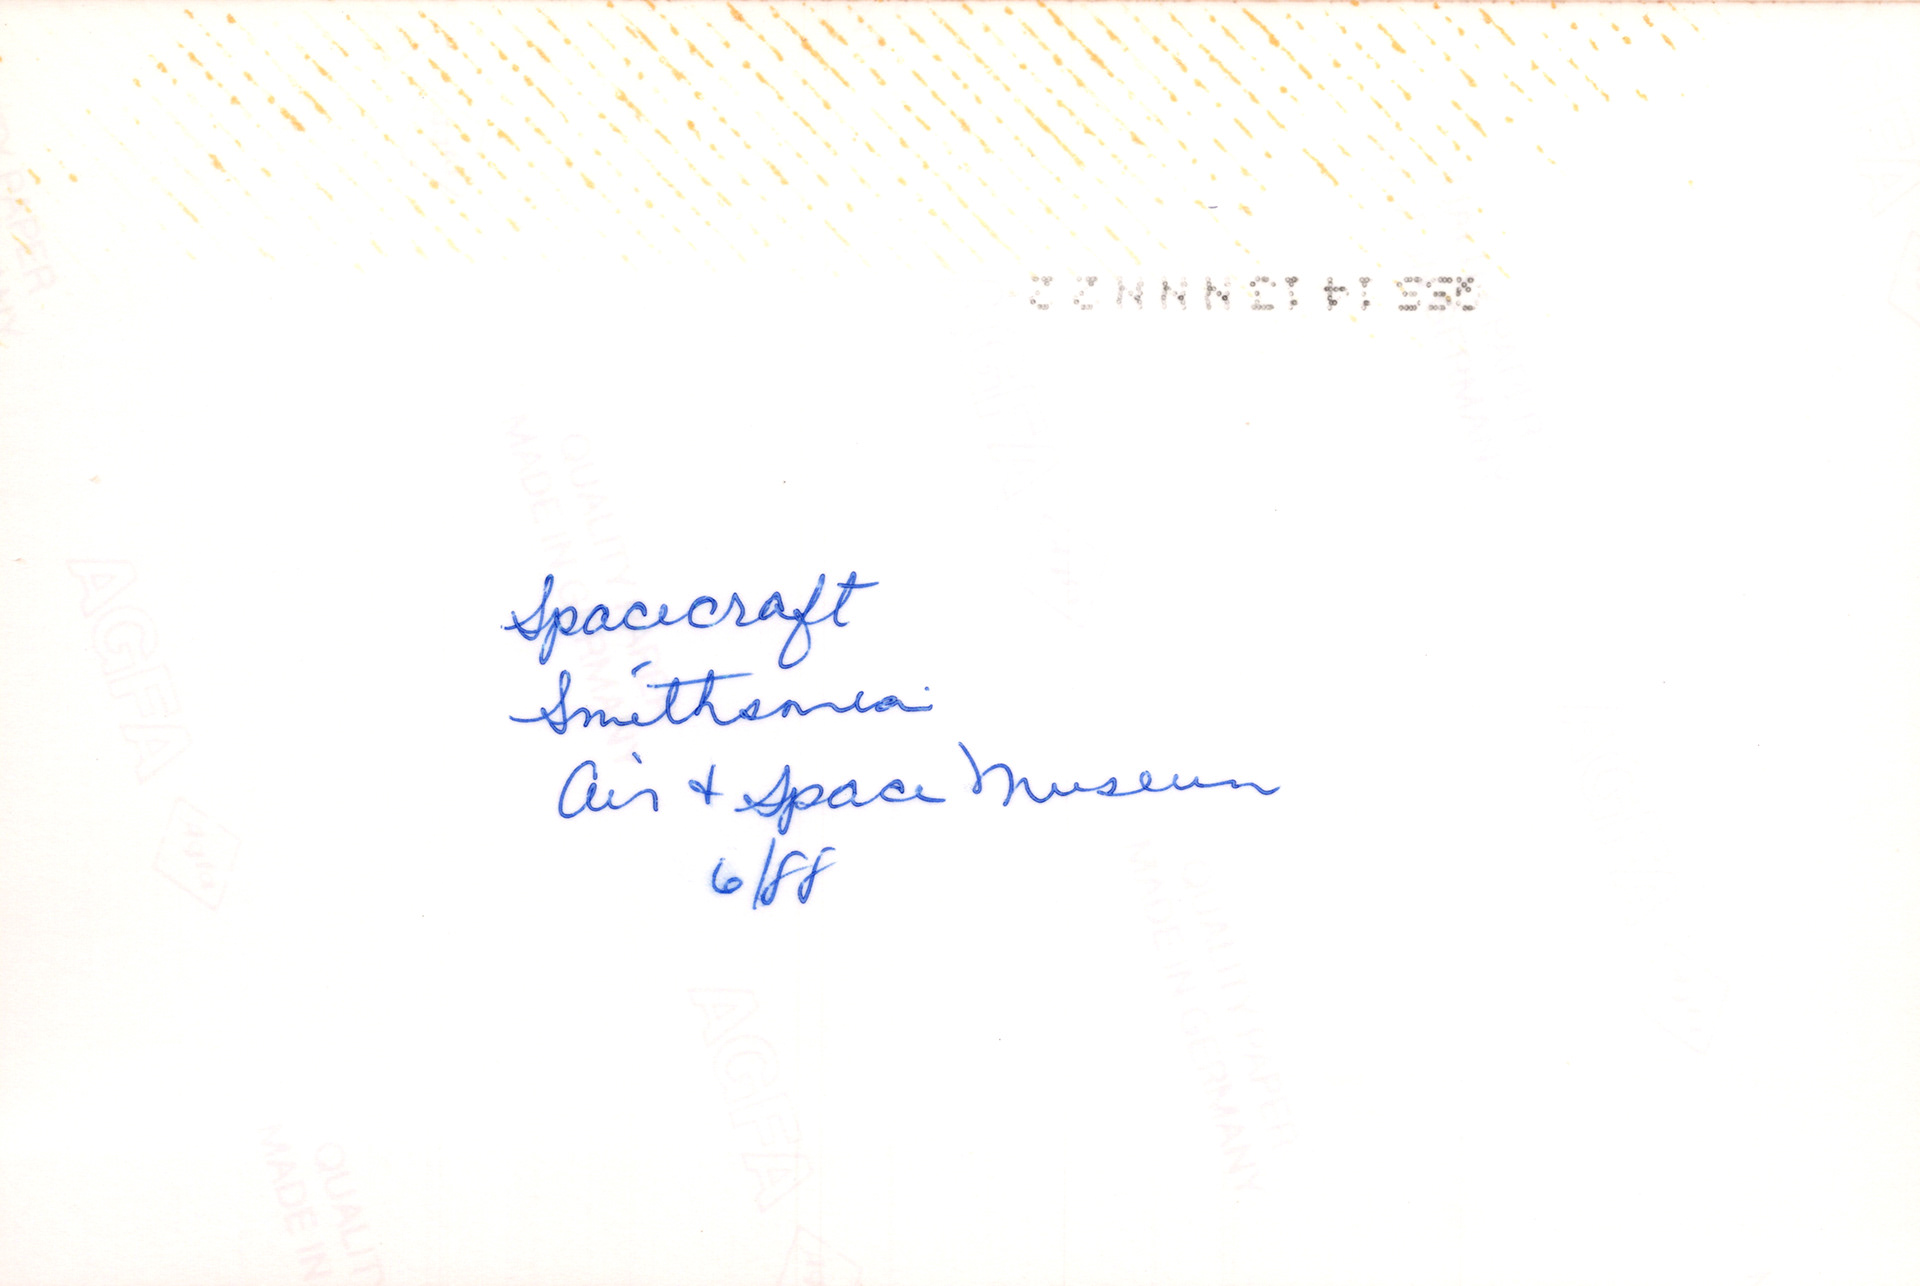 22NNN
Spacecraft
Smithsonia
Air & Space Museum
6/88
AGFA
QUALITY PAPER
MADE IN GERMANY
AGFA
QUALITY PAPER
MADE IN GERMANY
QUALIT
MADE IN
PAPER